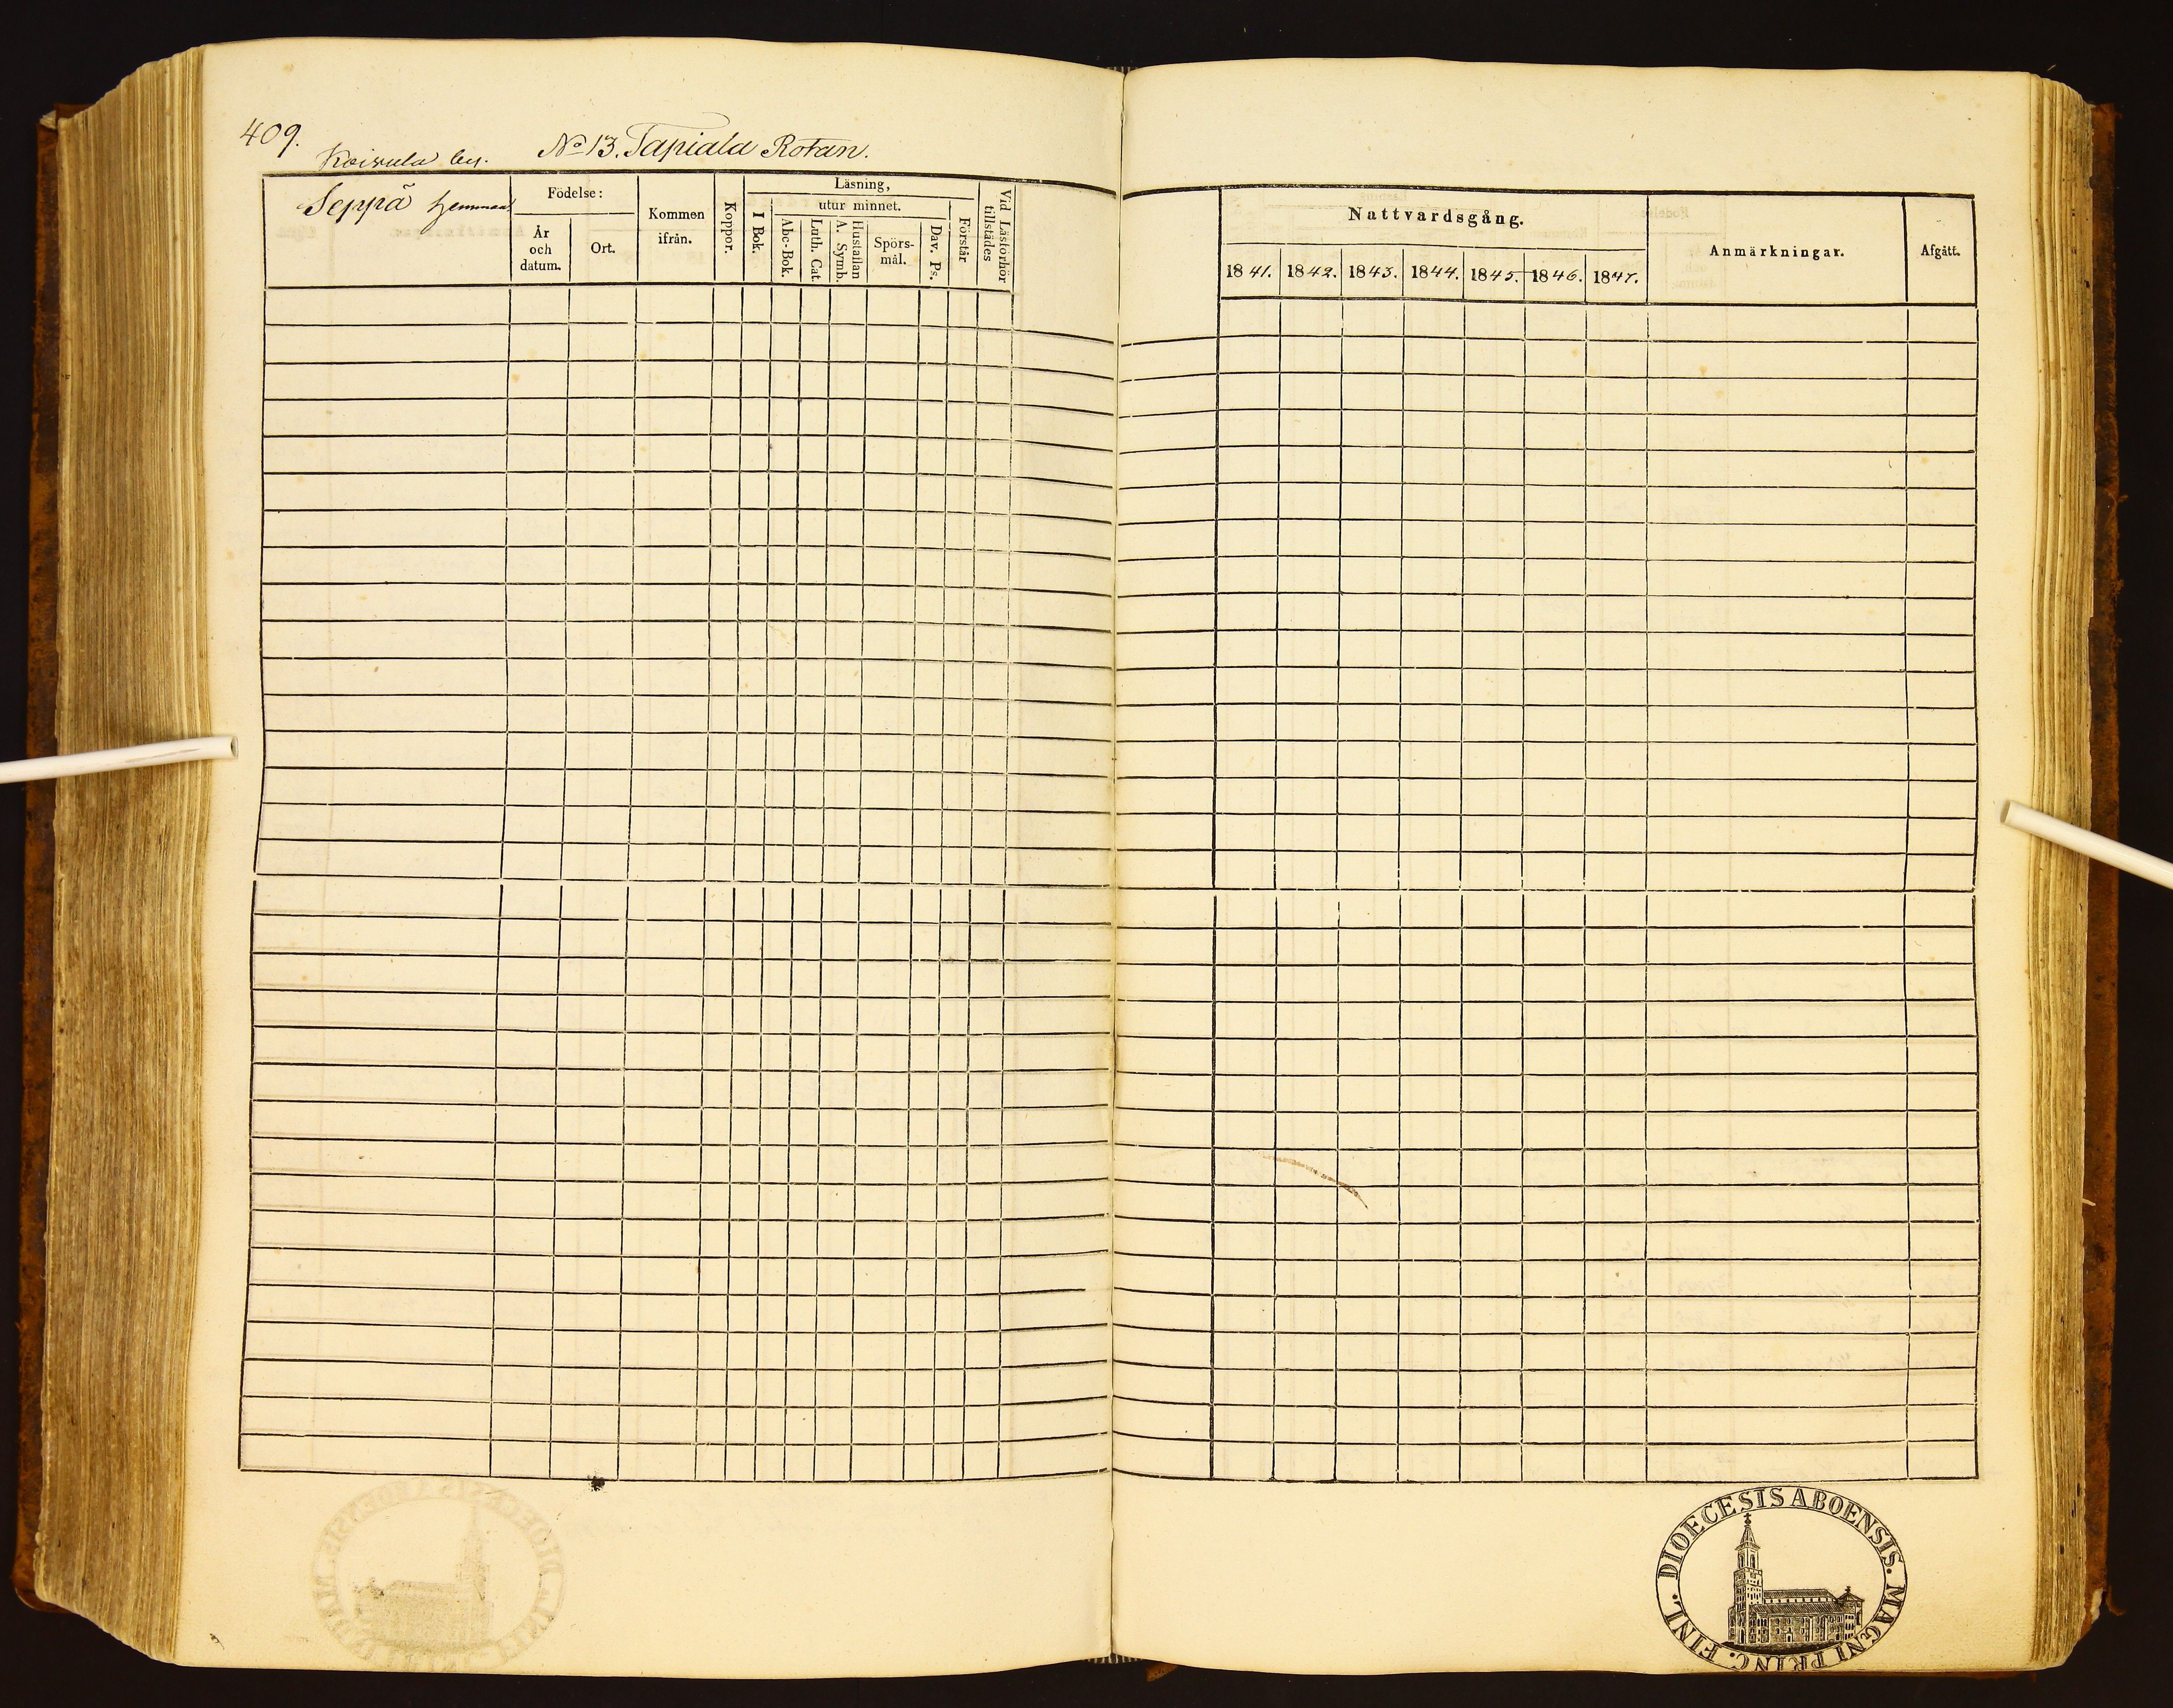 409.
Koivula by. No 13. Tapiala Rotan.
Seppä hemman
Födelse:
År och datum.
Ort.
Kommen ifrån.
Koppor.
Läsning,
utur minnet.
I Bok.
Abc-Bok.
Luth. Cat.
Hustaflan A. Symb.
Spörsmål.
Dav. Ps.
Förstår
Vid Läsförhör tillstädes
Nattvardsgång.
1841. 1842. 1843. 1844. 1845. 1846. 1847.
Anmärkningar.
Afgått.
DIOECESIS ABOENSIS. MAGNI PRINC. FINL.